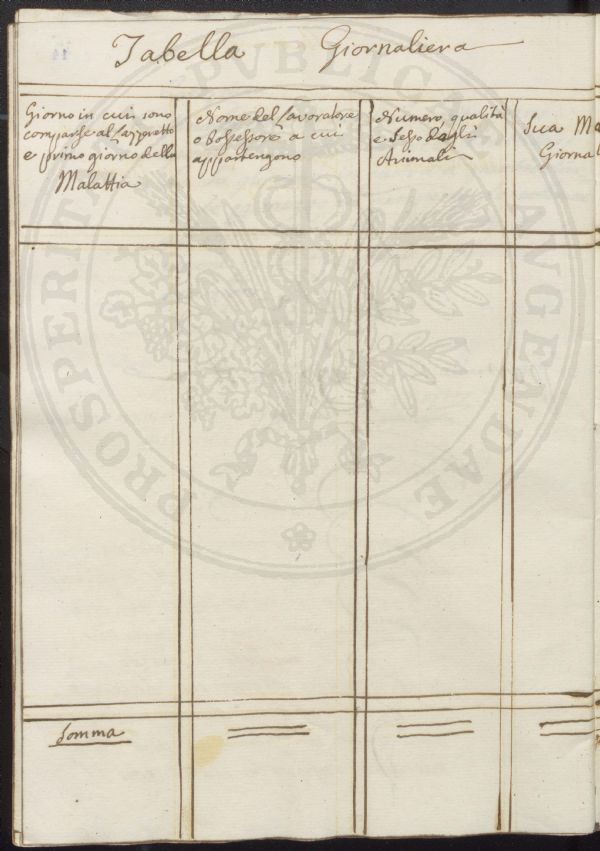 Tabella Giornaliera
Giorno in cui sono
comparse al Lazzaretto
e primo giorno della
Malattia
Nome del Lavoratore
o Possessore a cui
appartengono
Numero, qualità
e Sesso degli
Animali
Sua Ma
Giorna
Somma
PROSPERITATI PUBLICAE AUGENDAE